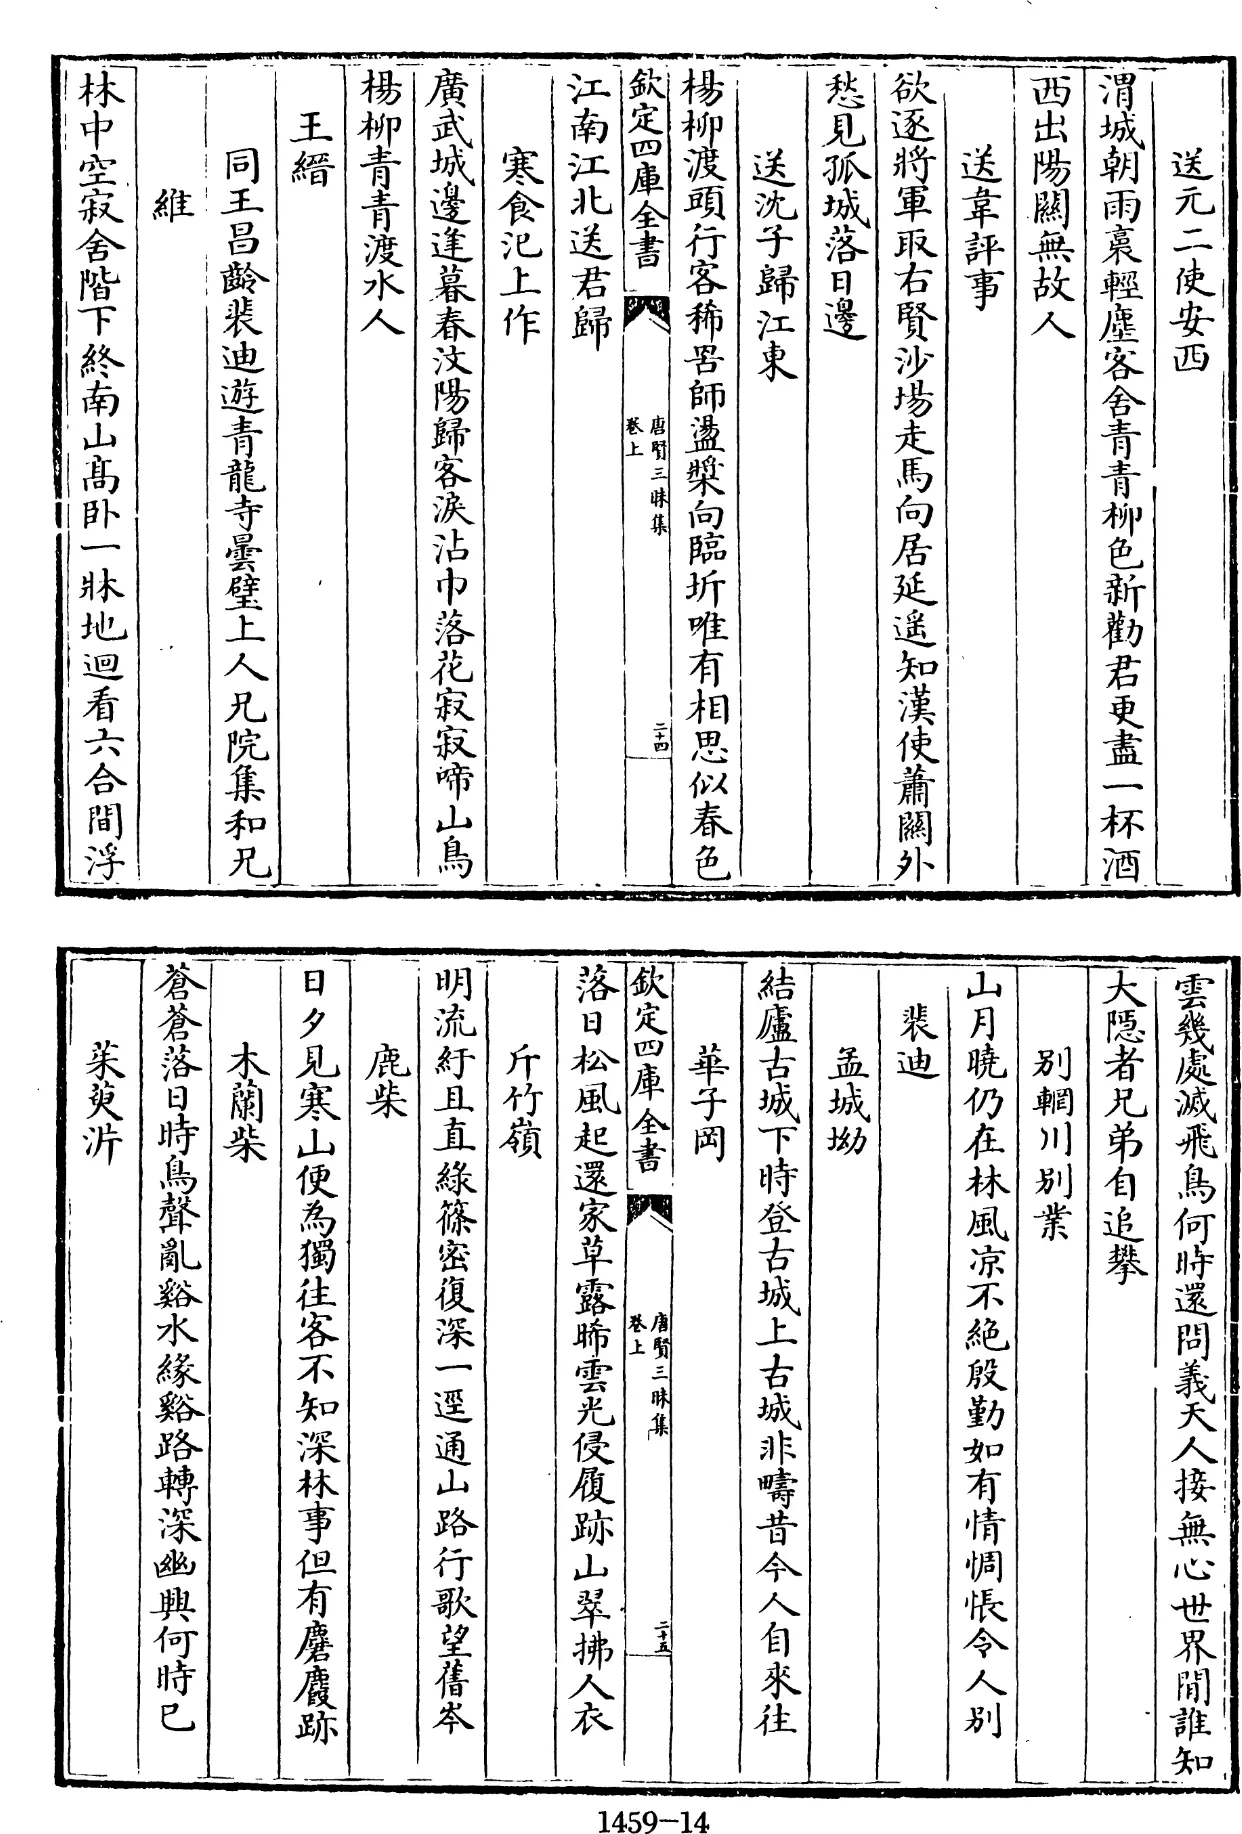 送元二使安西
渭城朝雨裛輕塵客舍青青柳色新勸君更盡一杯酒
西出陽關無故人
送韋評事
欲逐將軍取右賢沙場走馬向居延遥知漢使蕭關外
愁見孤城落日邊
送沈子歸江東
楊柳渡頭行客稀罟師盪槳向臨圻唯有相思似春色
欽定四庫全書
唐賢三昧集
卷上
二十四
江南江北送君歸
寒食汜上作
廣武城邊逢暮春汶陽歸客淚沾巾落花寂寂啼山鳥
楊柳青青渡水人
王縉
同王昌齡裴迪遊青龍寺曇壁上人兄院集和兄
維
林中空寂舍階下終南山高卧一牀地迴看六合間浮
雲幾處滅飛鳥何時還問義天人接無心世界閒誰知
大隱者兄弟自追攀
别輞川别業
山月曉仍在林風凉不絶殷勤如有情惆悵令人别
裴迪
孟城坳
結廬古城下時登古城上古城非疇昔今人自來往
華子岡
欽定四庫全書
唐賢三昧集
卷上
二十五
落日松風起還家草露晞雲光侵履跡山翠拂人衣
斤竹嶺
明流紆且直綠篠密復深一逕通山路行歌望舊岑
鹿柴
日夕見寒山便為獨往客不知深林事但有麏麚跡
木蘭柴
蒼蒼落日時鳥聲亂谿水緣谿路轉深幽興何時已
茱萸沜
1459-14